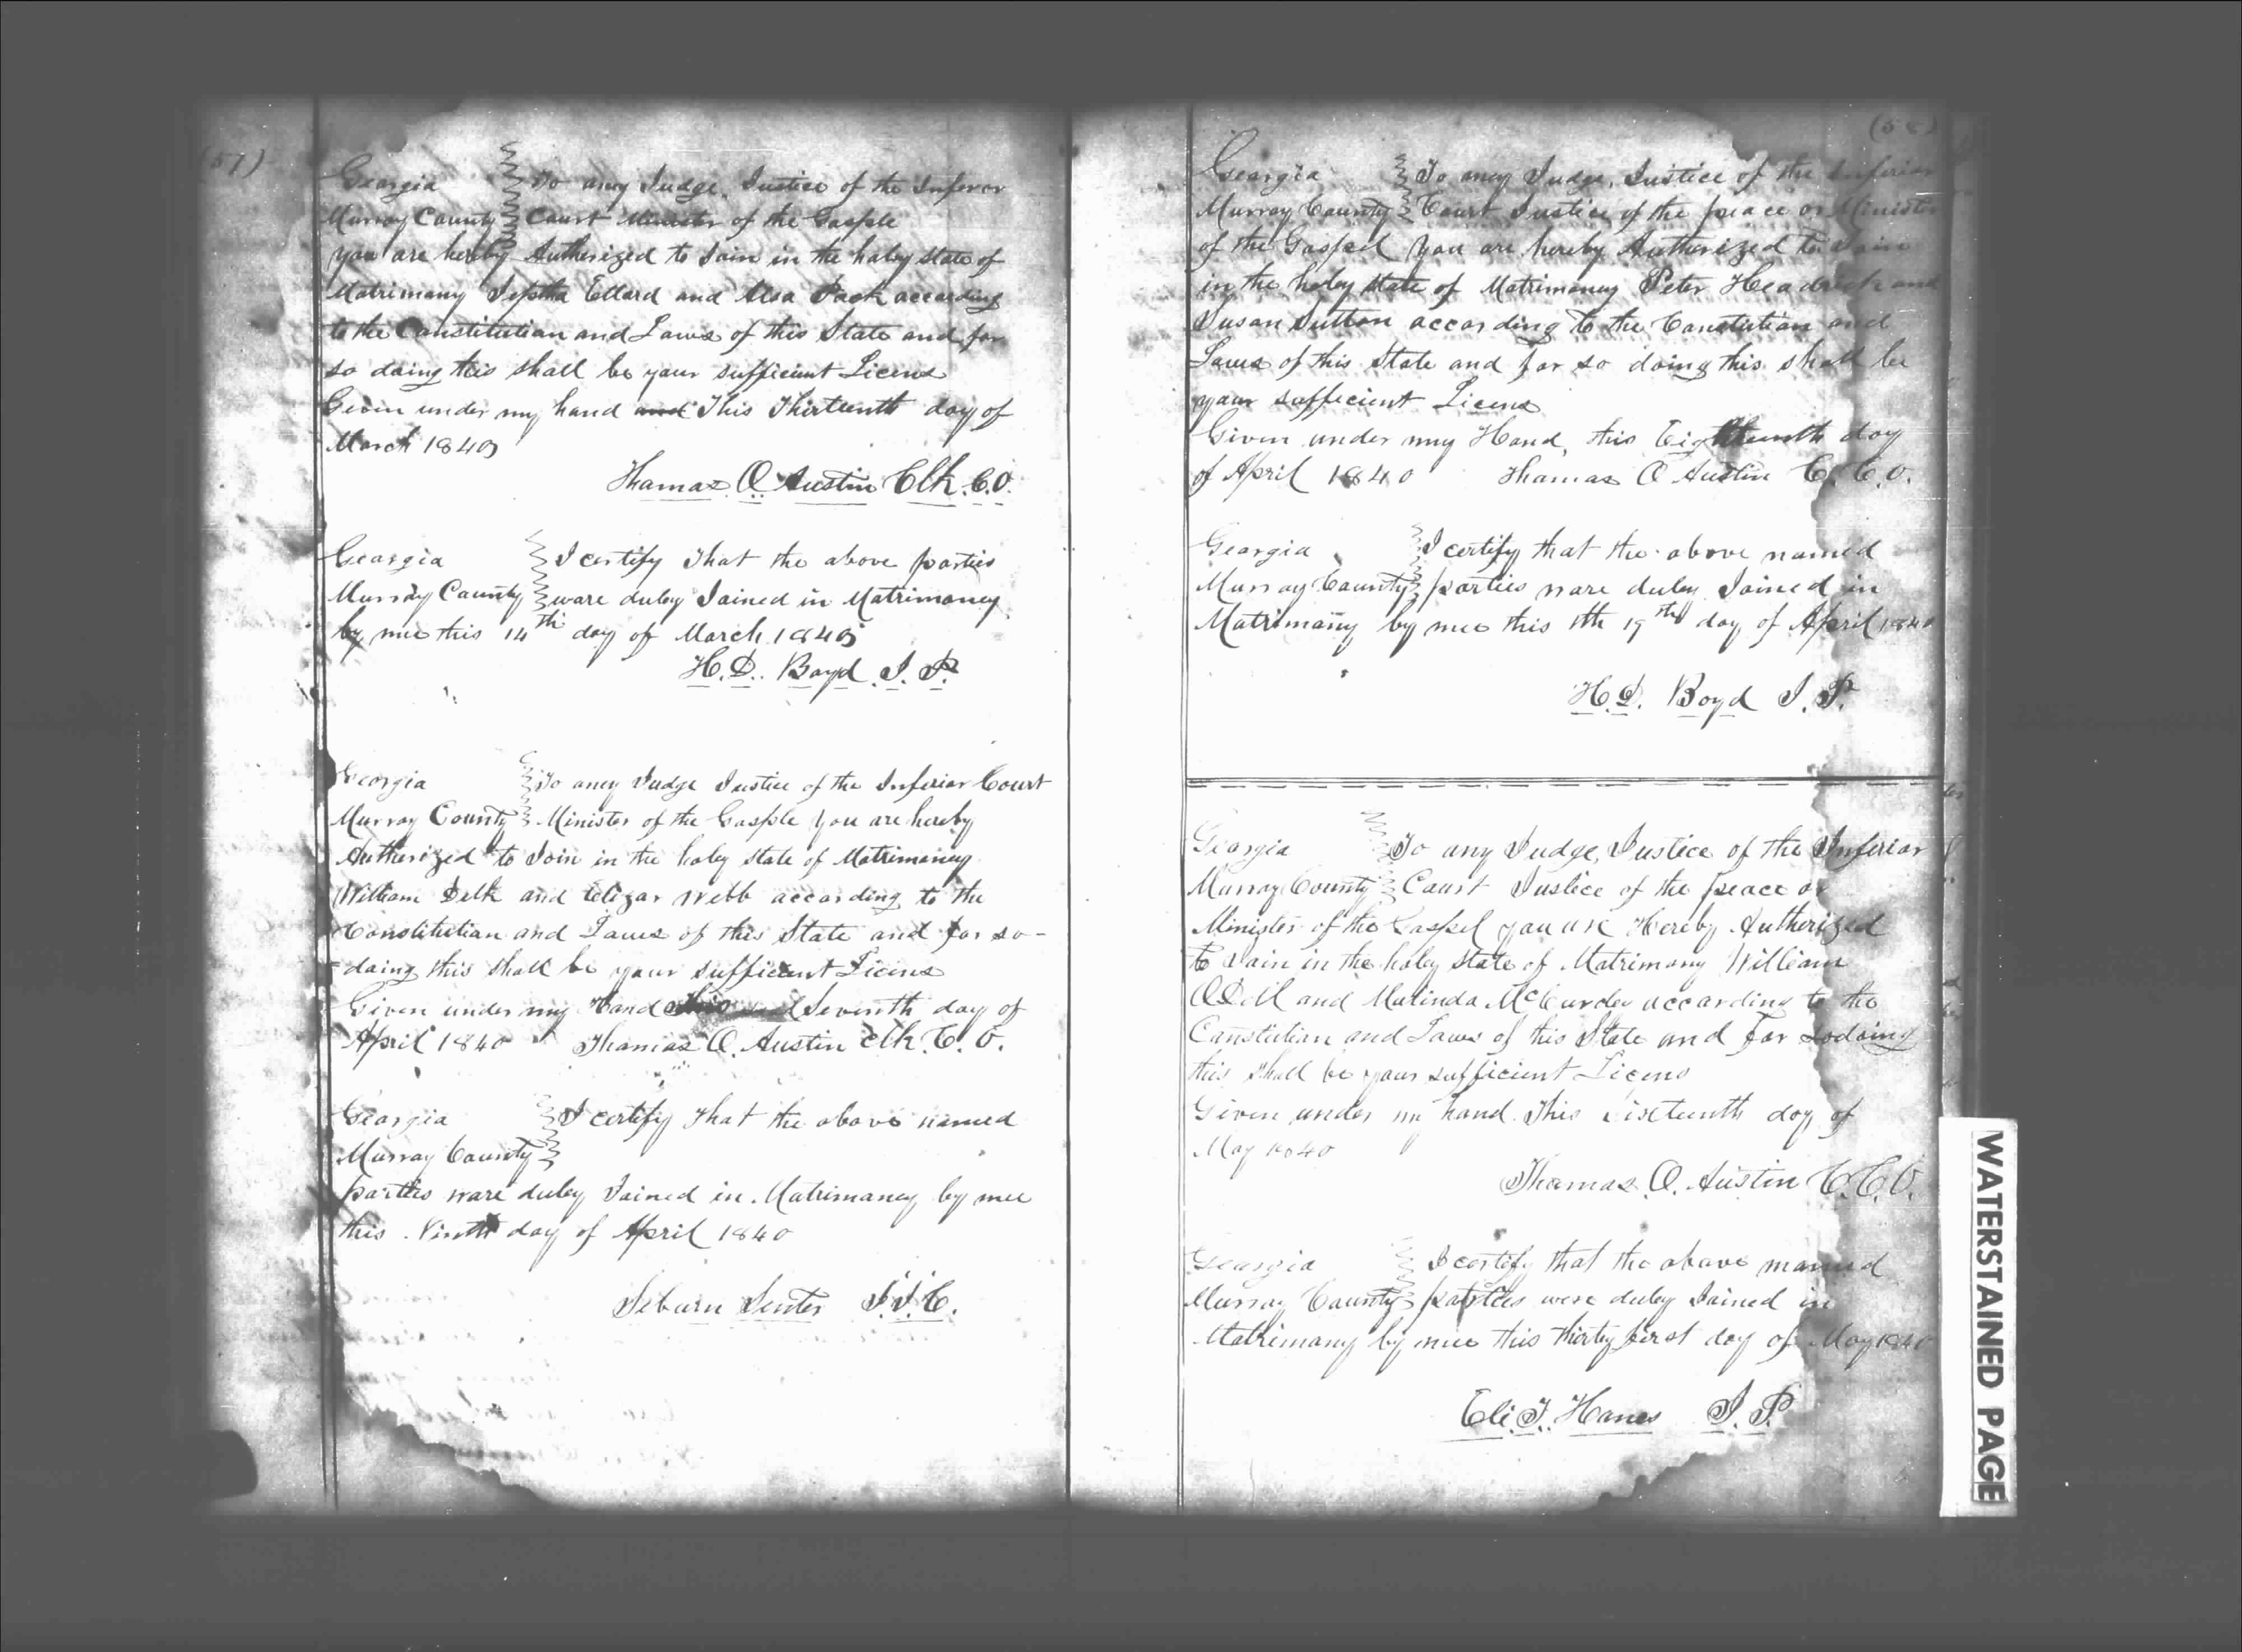 (57)
Georgia To any Judge, Justice of the Inferor
Murray County Court Minister of the Gosple
you are hereby Autherized to Join in the holey state of
Matrimony Jeptha Ellard and Alsa Pack according
to the Constitution and Laws of this State and for
so doing this shall be your sufficient Licens
Given under my hand and This Thirteenth day of
March 1840
Thomas Q Austin Clk. C.O.
Georgia I certify That the above parties
Murray County ware duley Joined in Matrimoney
by mee this 14th day of March 1840
H.D. Boyd J. P.
Georgia To aney Judge Justice of the Inferior Court
Murray County Minister of the Gosple you are hereby
Autherized to Join in the holey state of Matrimoney
William Delk and Elizar Webb according to the
Constitution and Laws of this State and for so-
doing this shall be your sufficient Licens
Given under my Hand this Seventh day of
April 1840 Thomas Q. Austin Clk. C. O.
Georgia I certify That the above named
Murray County
parties ware duley Joined in Matrimoney by mee
this Ninth day of April 1840
Seburn Senter J.I.C.
Georgia To aney Judge, Justice of the Inferior
Murray County Court Justice of the peace or Minister
of the Gospel you are hereby Autherized to Join
in the holey state of Matrimoney Peter Headrick and
Susan Sutton according to the Constitution and
Laws of this State and for so doing this shall be
your sufficient Licens
Given under my Hand, this Eighteenth day
of April 1840 Thomas Q Austin C. C. O.
Georgia I certify that the above named
Murray County parties ware duley Joined in
Matrimony by mee this the 19th day of April 1840
H.D. Boyd J. P.
Georgia To any Judge, Justice of the Inferior
Murray County Court Justice of the peace or
Minister of the Gospel you are Hereby Autherized
to Join in the holey state of Matrimony William
ODell and Malinda McCurdey according to the
Constitution and Laws of this State and for sodoing
this shall be your sufficient Licens
Given under my hand This Sixteenth day of
May 1840
Thomas Q. Austin C.C.O.
Georgia I certify that the above named
Murray County parties were duley Joined in
Matrimony by mee this thirty first day of May 1840
Eli J. Hanes J. P.
WATERSTAINED PAGE